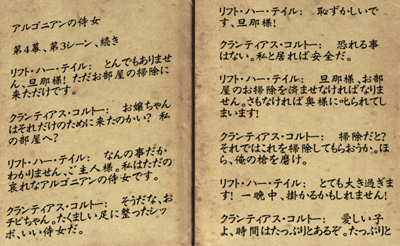 アルゴニアンの侍女
第4幕、第3シーン、続き
リフト・ハー・テイル： とんでもありませ
ん、旦那様！ ただお部屋の掃除に
来ただけです。
クランティアス・コルトー： お嬢ちゃん
はそれだけのために来たのかい？ 私
の部屋へ？
リフト・ハー・テイル： なんの事だか
わかりません、ご主人様。私はただの
哀れなアルゴニアンの侍女です。
クランティアス・コルトー： そうだな、お
チビちゃん。たくましい足に整ったシッ
ポ、いい侍女だ。
リフト・ハー・テイル： 恥ずかしいで
す、旦那様！
クランティアス・コルトー： 恐れる事
はない。私と居れば安全だ。
リフト・ハー・テイル： 旦那様、お部
屋のお掃除を済ませなければなりませ
ん。さもなければ奥様に叱られてし
まいます！
クランティアス・コルトー： 掃除だと？
それではこれを掃除してもらおうか。ほ
ら、俺の槍を磨け。
リフト・ハー・テイル： とても大き過ぎま
す！ 一晩中、掛かるかもしれません！
クランティアス・コルトー： 愛しい子
よ、時間はたっぷりとあるぞ。たっぷりと